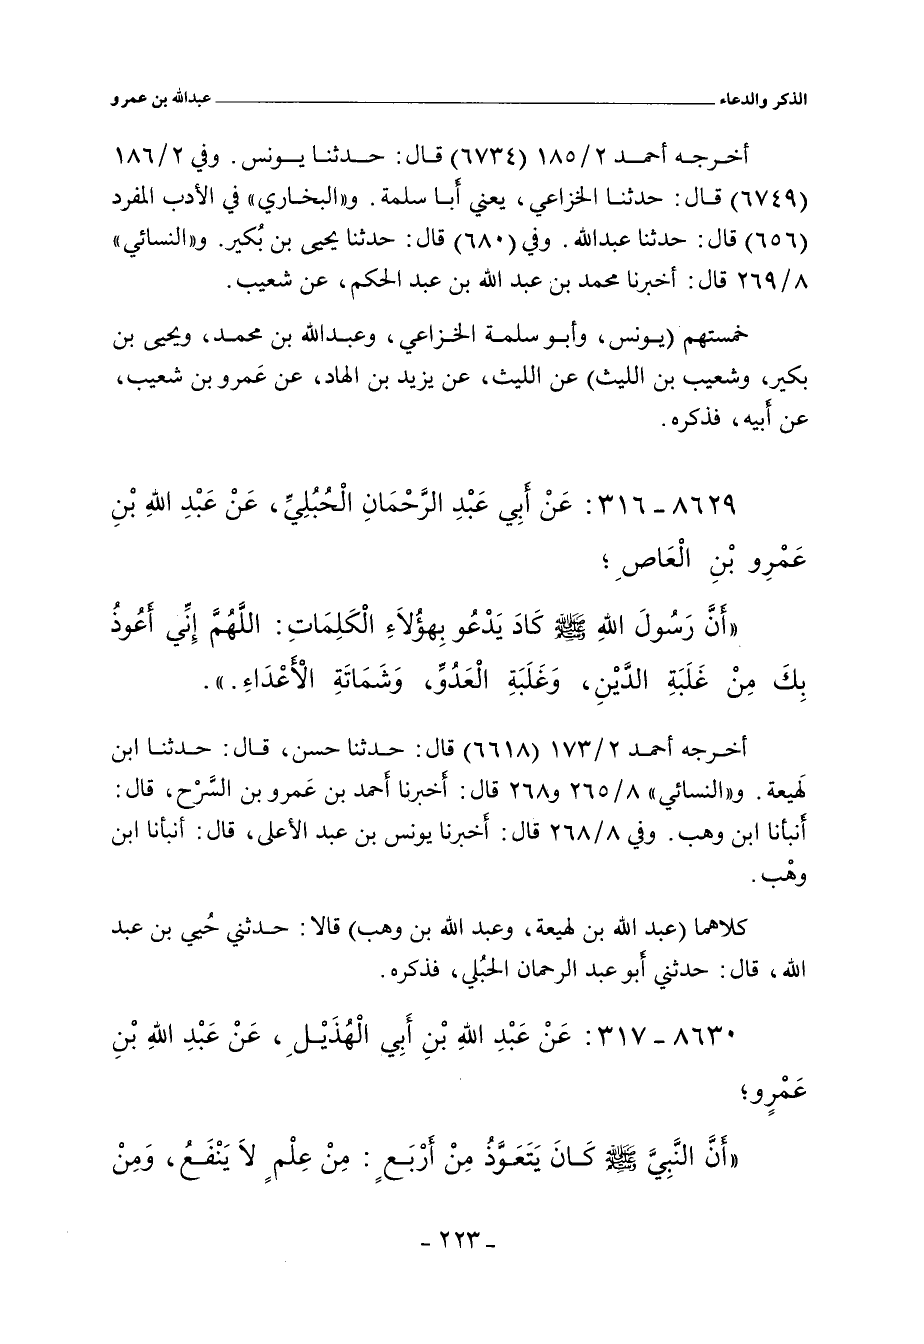 الذكر والدعاء ــــــــــــــــــــ عبدالله بن عمرو
أخـرجـه أحـمـد ٢/ ١٨٥ (٦٧٣٤) قـال: حـدثـنـا يـونـس. وفي ٢/ ١٨٦
(٦٧٤٩) قـال: حدثنـا الخزاعي، يعني أبـا سلمة. و«البخاري» في الأدب المفرد
(٦٥٦) قال: حدثنا عبدالله. وفي (٦٨٠) قال: حدثنا يحيى بن بُكير. و«النسائي»
٨/ ٢٦٩ قال: أخبرنا محمد بن عبد الله بن عبد الحكم، عن شعيب.
خمستهم (يـونس، وأبـو سلمـة الخـزاعي، وعبـدالله بن محمـد، ويحيى بن
بكير، وشعيب بن الليث) عن الليث، عن يزيد بن الهاد، عن عَمرو بن شعيب،
عن أبيه، فذكره.
٨٦٢٩ - ٣١٦: عَنْ أَبِي عَبْدِ الرَّحْمَانِ الْحُبُلِيِّ، عَنْ عَبْدِ اللهِ بْنِ
عَمْرِو بْنِ الْعَاصِ؛
«أَنَّ رَسُولَ اللهِ ﷺ كَادَ يَدْعُو بِهؤُلاَءِ الْكَلِمَاتِ: اللَّهُمَّ إِنِّي أَعُوذُ
بِكَ مِنْ غَلَبَةِ الدَّيْنِ، وَغَلَبَةِ الْعَدُوِّ، وَشَمَاتَةِ الْأَعْدَاءِ.».
أخـرجه أحمـد ٢/ ١٧٣ (٦٦١٨) قال: حـدثنا حسن، قـال: حـدثنـا ابن
لهَيعة. و«النسائي» ٨/ ٢٦٥ و٢٦٨ قال: أخبرنا أحمد بن عَمرو بن السَّرْح، قال:
أنبأنا ابن وهب. وفي ٨/ ٢٦٨ قال: أخبرنا يونس بن عبد الأعلى، قال: أنبأنا ابن
وهْب.
كلاهما (عبد الله بن لهيعة، وعبد الله بن وهب) قالا: حـدثني حُيي بن عبد
الله، قال: حدثني أبو عبد الرحمان الحبُلي، فذكره.
٨٦٣٠ - ٣١٧: عَنْ عَبْدِ اللهِ بْنِ أَبِي الْهُذَيْـلِ، عَنْ عَبْدِ اللهِ بْنِ
عَمْرٍو؛
«أَنَّ النَّبِيَّ ﷺ كَـانَ يَتَعَـوَّذُ مِنْ أَرْبَـعٍ: مِنْ عِلْمٍ لاَ يَنْفَـعُ، وَمِنْ
- ٢٢٣ -